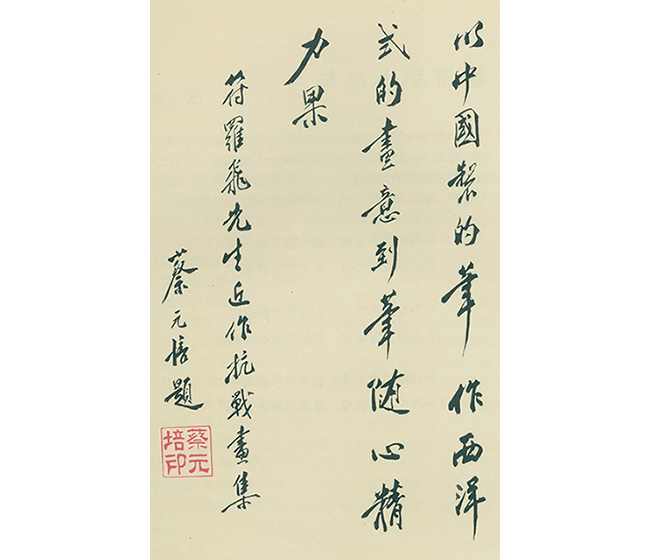 以中國製的筆作西洋
式的畫意到筆随心精
力果
符羅飛先生近作抗戰畫集
蔡元培題
蔡元培印